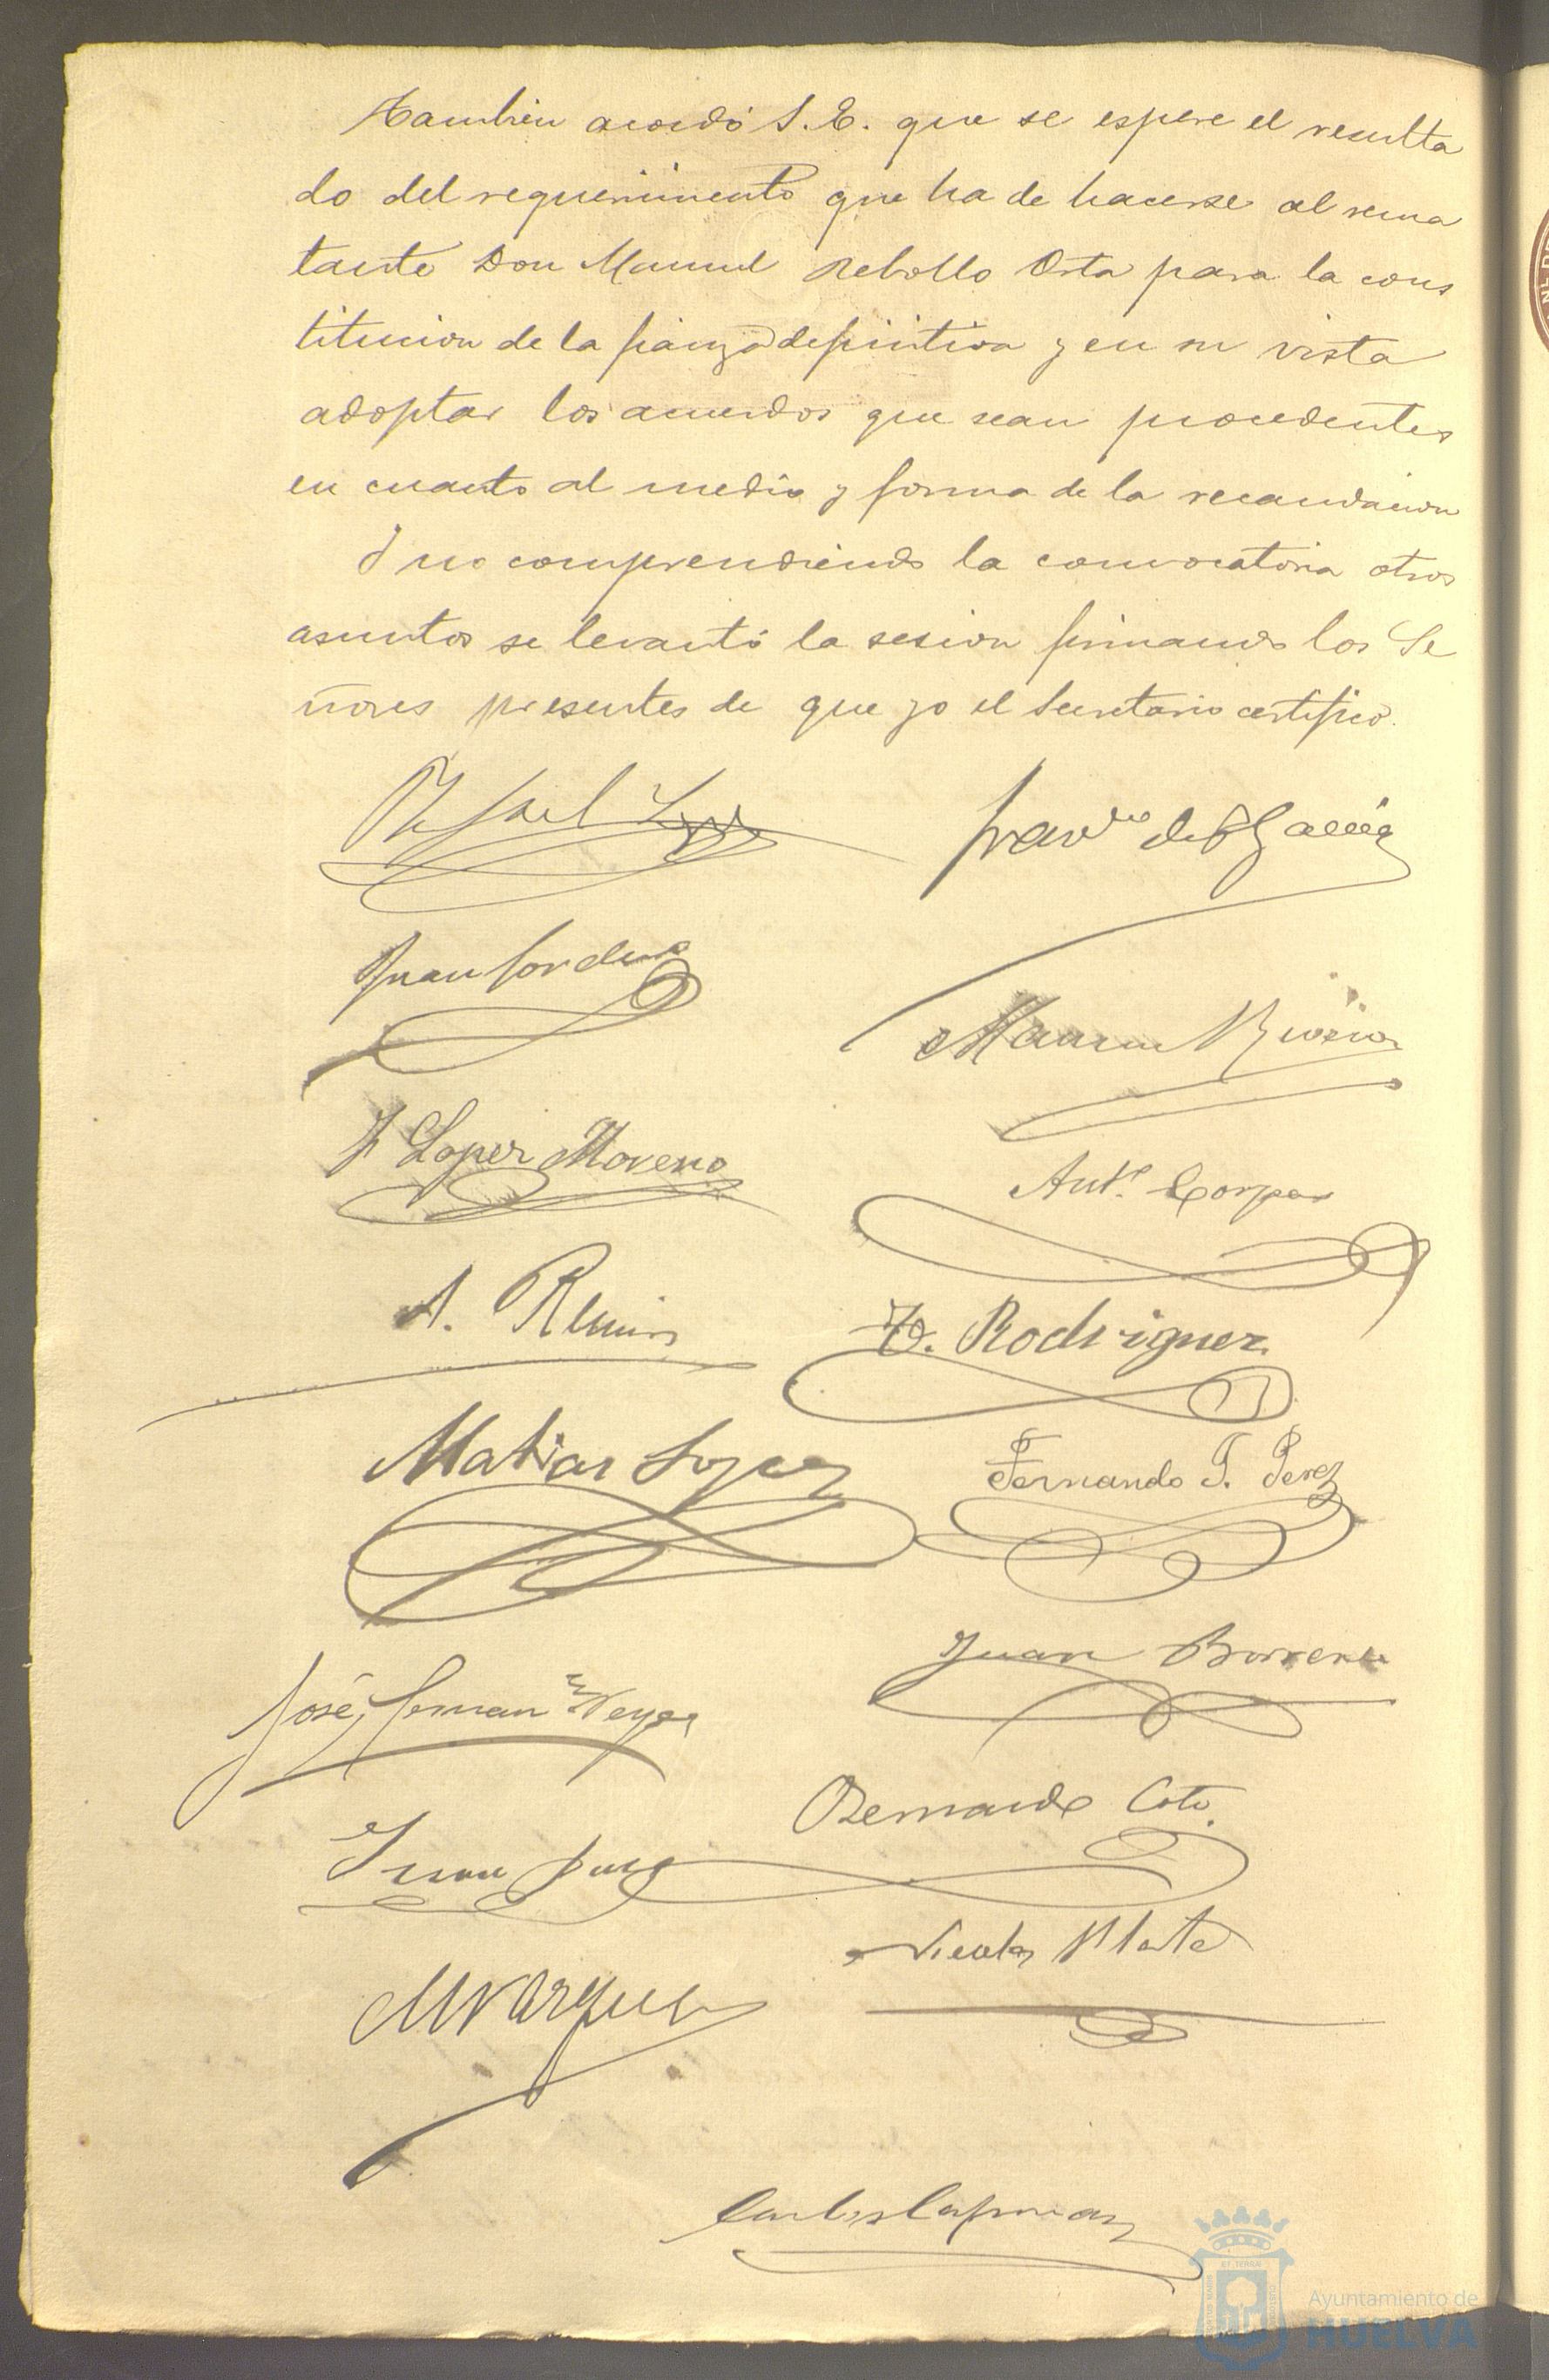 Tambien acordó S.E. que se espere el resulta
do del requerimiento que ha de hacerse al rema
tante Don Manuel Rebollo Orta para la cons
titucion de la fianza definitiva y en su vista
adoptar los acuerdos que sean procedentes
en cuanto al medio y forma de la recaudacion
Y no comprendiendo la convocatoria otros
asuntos se levantó la sesion firmando los Se
ñores presentes de que yo el Secretario certifico.
Rafael
Franco de P García
Juan
J Lopez Moreno
Anto. Corpas
A.
Rodriguez
Matias Lopez
Fernando T. Perez
Juan Borrero
José Fernanz
Bernardo Coto.
Juan
Nicolas
M Vazquez
Ayuntamiento de
HUELVA